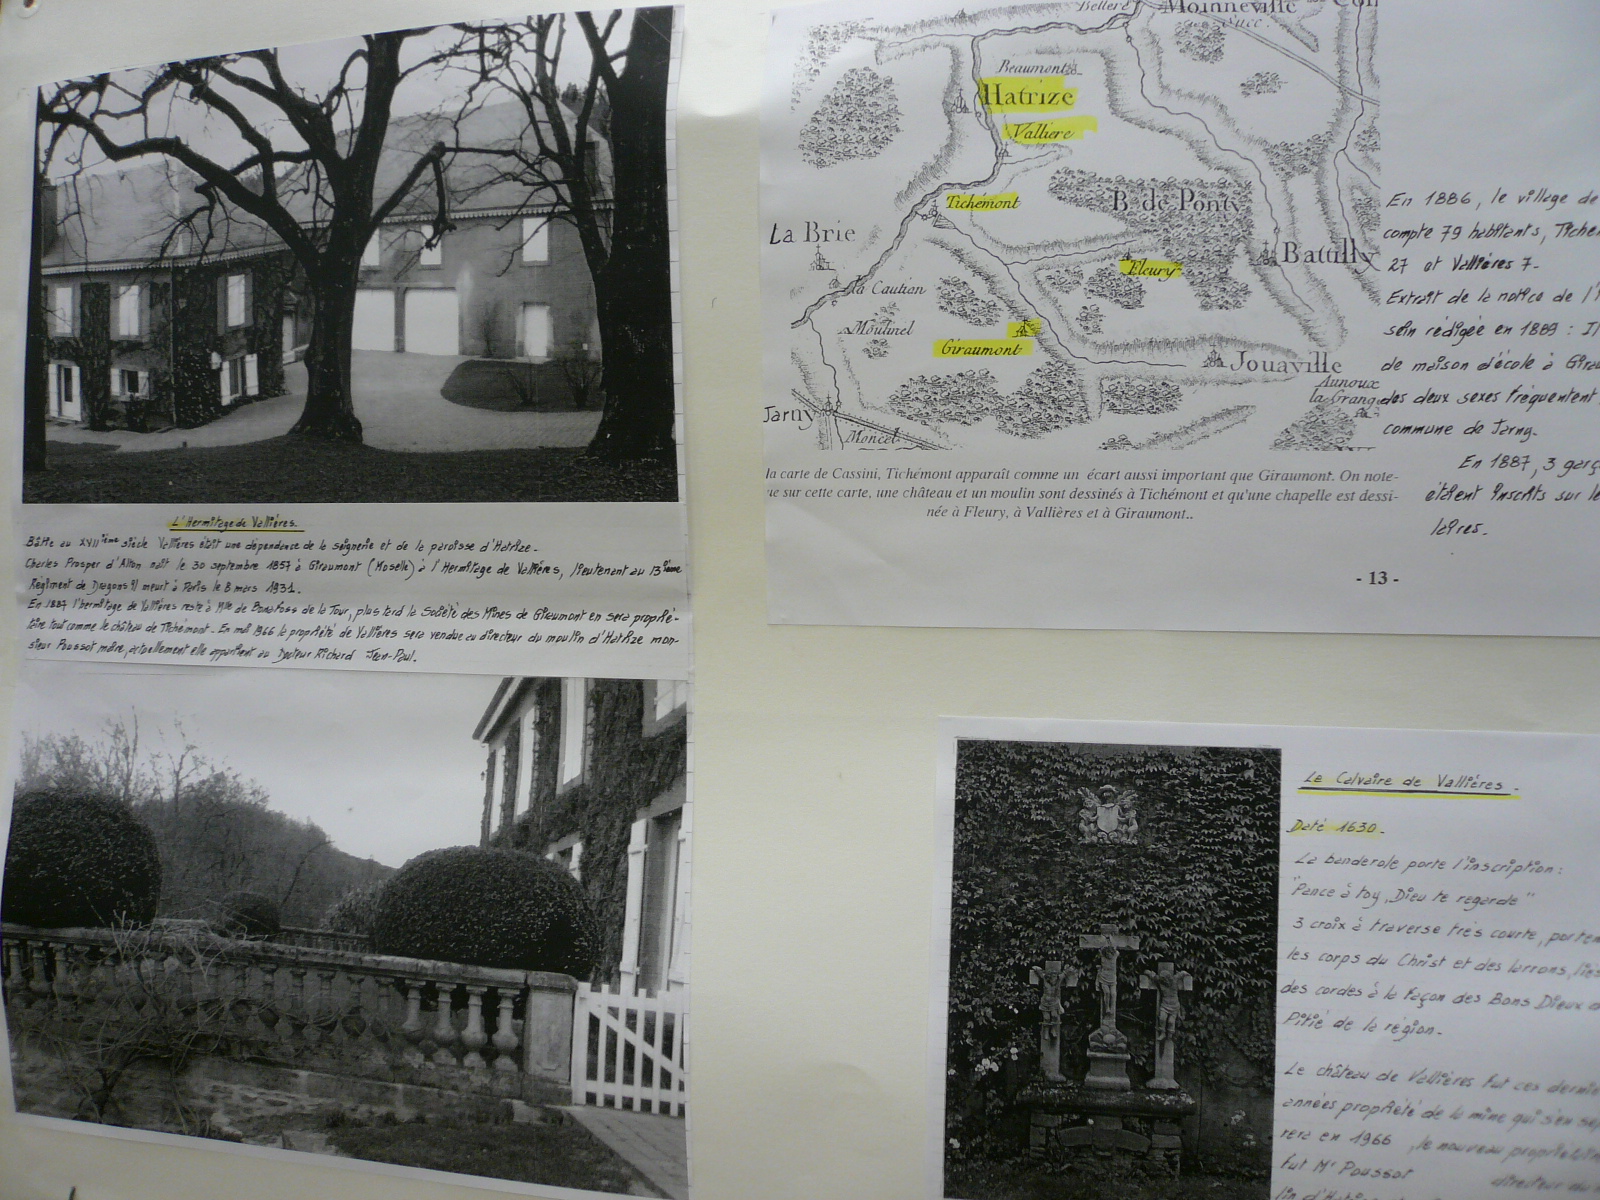 L'Hermitage de Vallières.
Bâtie au XVIIième siècle Vallières était une dépendance de la seigneurie et de la paroisse d'Hatrize.
Charles Prosper d'Alton naît le 30 septembre 1857 à Giraumont (Moselle) à l'Hermitage de Vallières, lieutenant au 13ième
Régiment de Dragons il meurt à Paris le 8 mars 1931.
En 1887 l'hermitage de Vallières reste à Mlle de Bonafoss de la Tour, plus tard la Société des Mines de Giraumont en sera proprié-
taire tout comme le château de Tichémont. En mai 1966 la propriété de Vallières sera vendue au directeur du moulin d'Hatrize mon-
sieur Poussot maire, actuellement elle appartient au Docteur Richard Jean-Paul.
Moinneville
Succ.
Beaumont
Hatrize
Valliere
Tichémont
B. de Ponty
La Brie
Batully
Fleury
la Caulian
Moulinel
Giraumont
Jouaville
Aunoux
la Grange
Jarny
Moncel
la carte de Cassini, Tichémont apparaît comme un écart aussi important que Giraumont. On note-
ue sur cette carte, une château et un moulin sont dessinés à Tichémont et qu'une chapelle est dessi-
née à Fleury, à Vallières et à Giraumont..
En 1886, le village de
compte 79 habitants, Tiché
27 et Vallières 7-
Extrait de la notice de l'
sein rédigée en 1889 : Il
de maison d'école à Girau
des deux sexes fréquentent
commune de Jarny.
En 1887, 3 garç
étaient inscrits sur le
laires.
- 13 -
Le Calvaire de Vallières.
Daté 1630.
La banderole porte l'inscription :
"Pance à toy, Dieu te regarde"
3 croix à traverse très courte, porten
les corps du Christ et des larrons, liés
des cordes à la façon des Bons Dieux d
Pitié de la région.
Le château de Vallières fut ces derniè
années propriété de la mine qui s'en sép
rera en 1966, le nouveau propriétaire
fut Mr Poussot directeur du
lin d'Hatrize